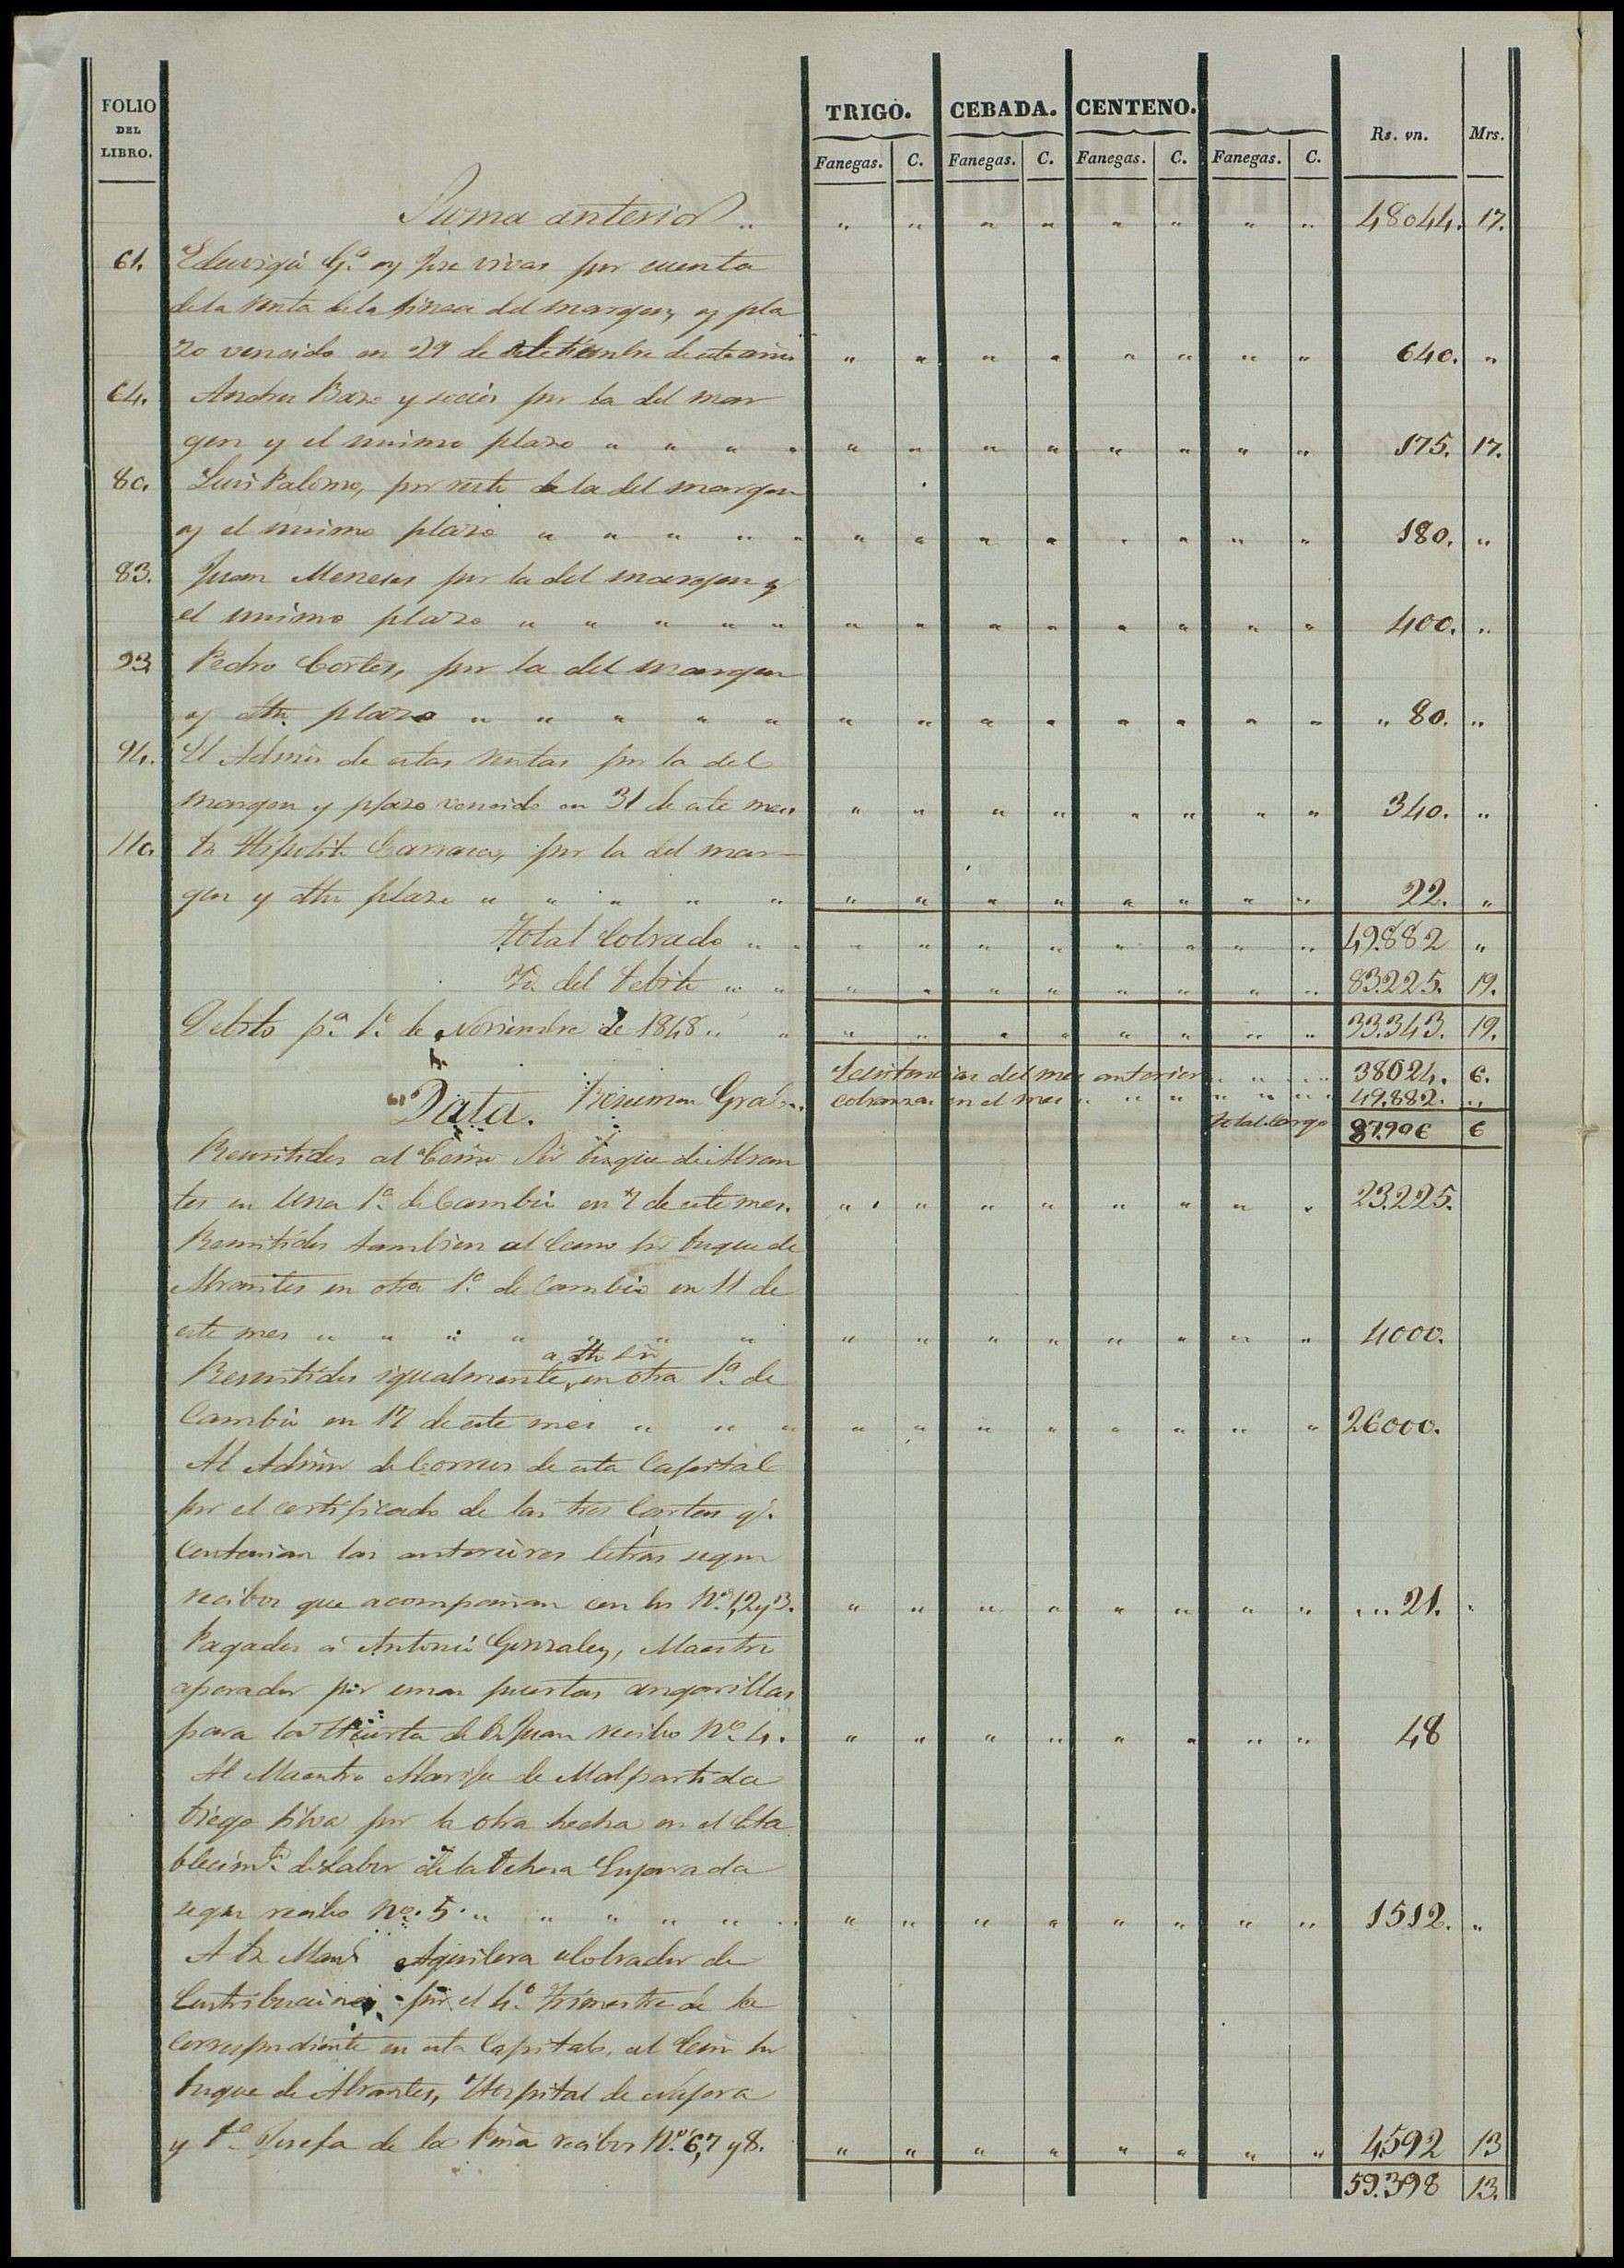 FOLIO DEL LIBRO. TRIGO. CEBADA. CENTENO. Rs. vn. Mrs.
Fanegas. C. Fanegas. C. Fanegas. C. Fanegas. C.
Suma anterior " " " " " " " " " 48044. 17.
61. Eduvigis Ga. y Jose vivas por cuenta
de la renta de la finca del margen, y pla
zo vencido en 29 de Setiembre de este año " " " " " " " " 640. "
64. Andres Bazo y socios por la del mar
gen y el mismo plazo " " " " " " " " " " " " 175. 17.
80. Luis Palomo, por resto de la del margen
y el mismo plazo " " " " " " " " " " " " " 180. "
83. Juan Meneses por la del margen y
el mismo plazo " " " " " " " " " " " " " 400. "
93. Pedro Cortes, por la del margen
y dho. plazo " " " " " " " " " " " " " " 80. "
94. El Admor de estas rentas por la del
margen y plazo vencido en 31 de este mes " " " " " " " " 340. "
110. Dn Hipolito Carrasco, por la del mar
gen y dho plazo " " " " " " " " " " " " " 22. "
Total Cobrado " " " " " " " " " " 49.882 "
Yd. del Debito " " " " " " " " " " 83.225. 19.
Debito pa. 1o. de Noviembre de 1848 " " " " " " " " " " 33.343. 19.
Data. Resumen Gral. Existencia del mes anterior " " " 38024. 6.
Cobranza en el mes " " " " " " 49.882. "
Total cargo 87.906 6
Remitidos al Exmo Sor Duque de Abran
tes en una la. de Cambio en 7 de este mes. " " " " " " " " 23.225.
Remitidos tambien al Exmo Sor Duque de
Abrantes en otra la. de Cambio en 11 de
este mes " " " " " " " " " " " " " " " 4000.
a dho Sor
Remitidos igualmente, en otra la. de
Cambio en 17 de este mes " " " " " " " " " " " 26000.
Al Admor de Correos de esta Capital
por el certificado de las tres Cartas q.
contenian las anteriores letras segun
recibos que acompañan con los Nos. 1, 2 y 3. " " " " " " " " " " 21. "
Pagados á Antonio Gonzalez, Maestro
aperador por unas puertas angarillas
para la Huerta de Dn Juan recibo No. 4. " " " " " " " " 48
Al Maestro Alarife de Malpartida
Diego Silva por la obra hecha en el Esta
blecimto. de Labor de la Dehesa Enjarada
segun recibo No. 5. " " " " " " " " " " " " " " 1512. "
A Dn Manl Aguilera cobrador de
Contribuciones por el 4o. Trimestre de la
correspondiente en esta Capital, al Exmo Sor
Duque de Abrantes, Hospital de Nájera
y Da. Josefa de la Peña recibos Nos. 6, 7 y 8. " " " " " " " " 4592 13
59.398 13.